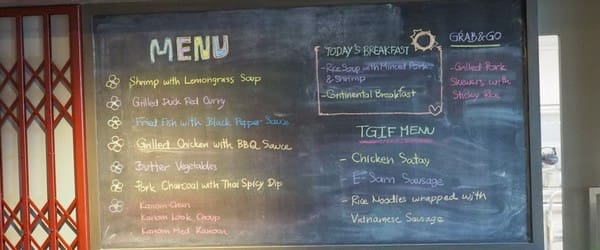 MENU
Shrimp with Lemongrass Soup
Grilled Duck Red Curry
Fried Fish with Black Pepper Sauce
Grilled Chicken with BBQ Sauce
Butter Vegetables
Pork Charcoal with Thai Spicy Dip
Kanom Chan
Kanom Look Choup
Kanom Med Kanoon
TODAY'S BREAKFAST
- Rice Soup with Minced Pork
& Shrimp
- Continental Breakfast
TGIF MENU
- Chicken Satay
E-Sarn Sausage
- Rice Noodles wrapped with
Vietnamese Sausage
GRAB&GO
- Grilled Pork
Skewers with
Sticky Rice